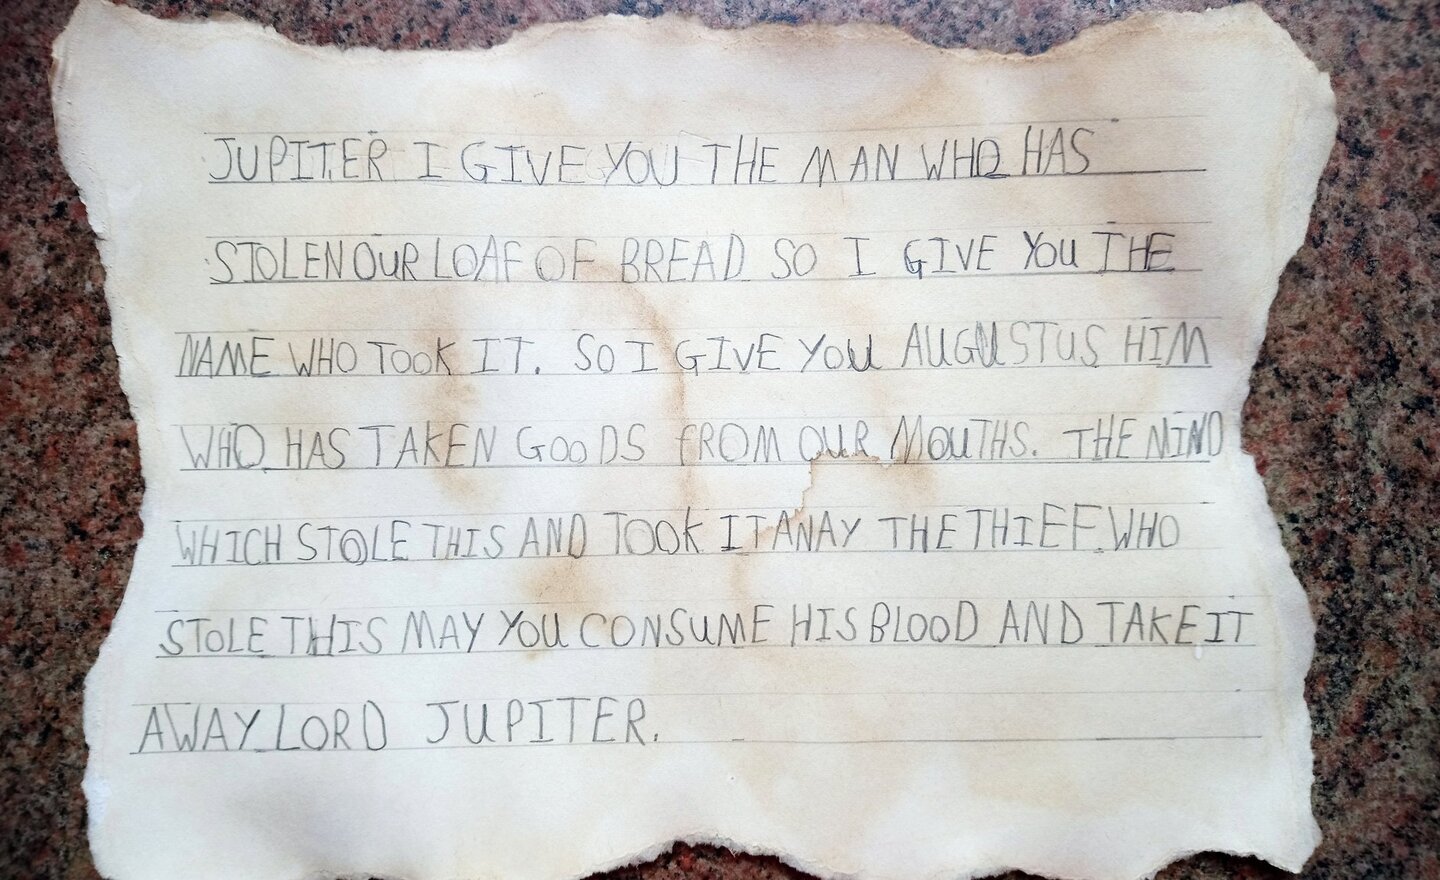 JUPITER I GIVE YOU THE MAN WHO HAS
STOLEN OUR LOAF OF BREAD SO I GIVE YOU THE
NAME WHO TOOK IT. SO I GIVE YOU AUGUSTUS HIM
WHO HAS TAKEN GOODS FROM OUR MOUTHS. THE MIND
WHICH STOLE THIS AND TOOK IT AWAY THE THIEF WHO
STOLE THIS MAY YOU CONSUME HIS BLOOD AND TAKE IT
AWAY LORD JUPITER.